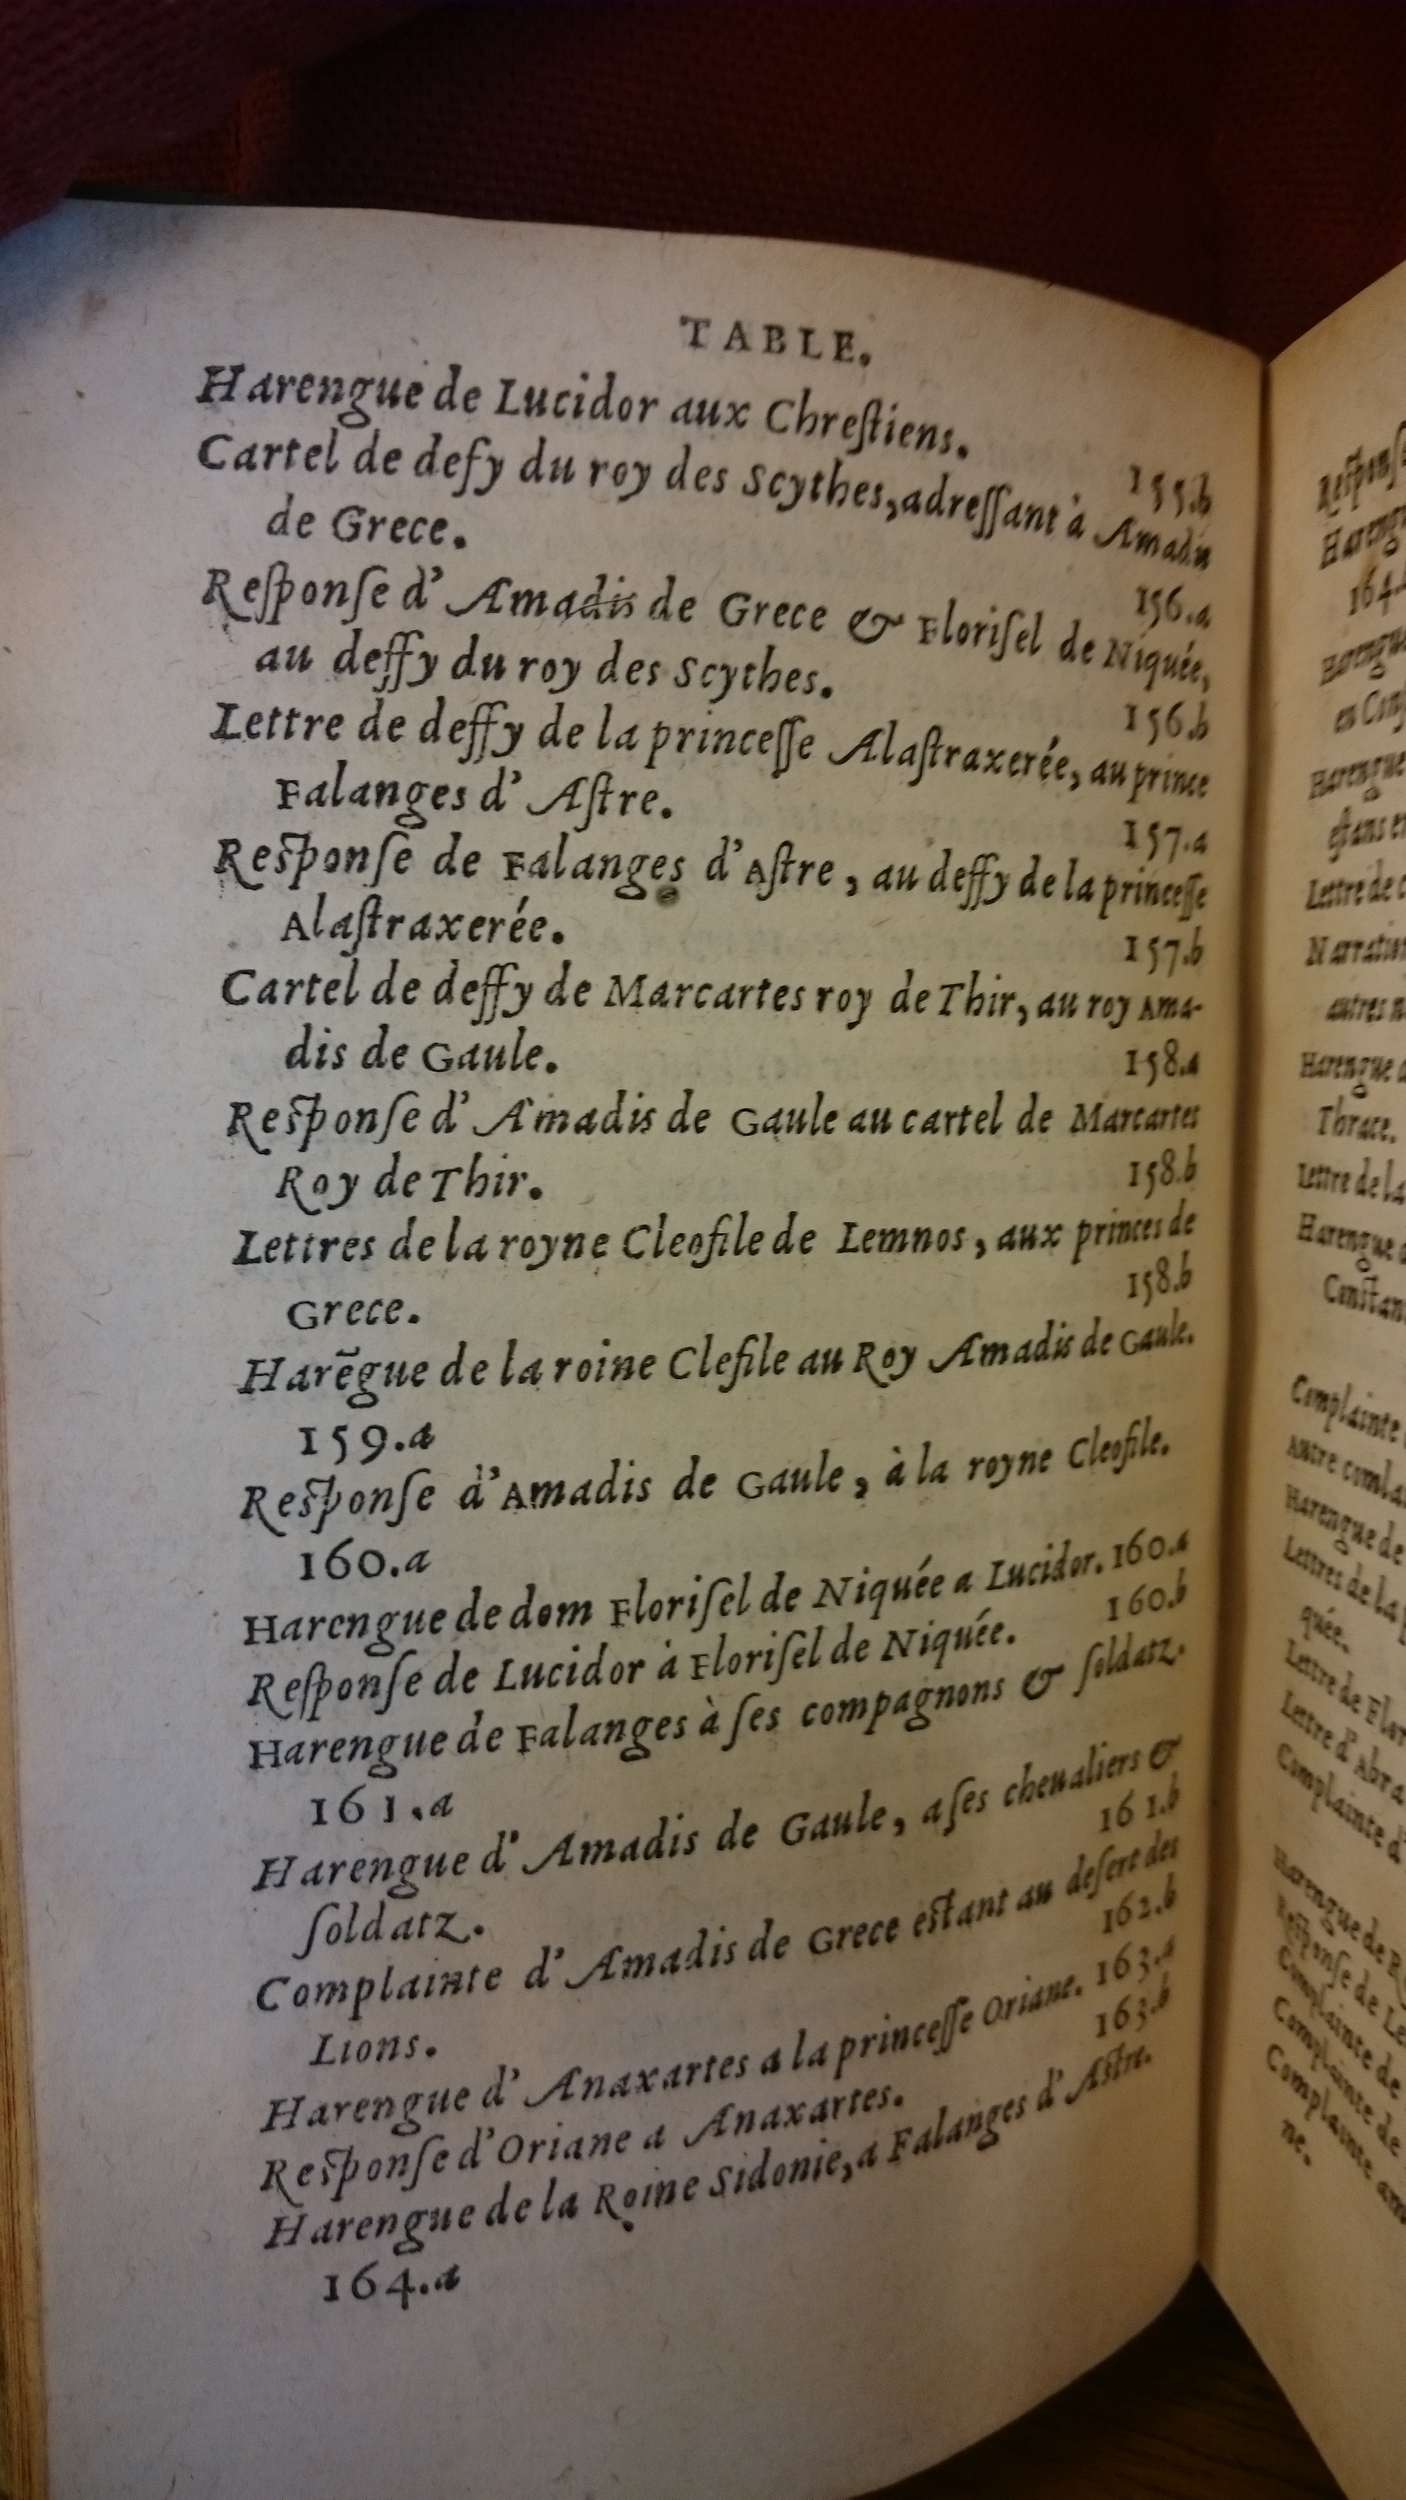 TABLE.
Harengue de Lucidor aux Chreſtiens. 155.b
Cartel de defy du roy des Scythes, adreſſant à Amadis
de Grece. 156.a
Reſponſe d' Amadis de Grece & Floriſel de Niquée,
au deffy du roy des Scythes. 156.b
Lettre de deffy de la princeſſe Alaſtraxerée, au prince
Falanges d' Aſtre. 157.a
Reſponſe de Falanges d'Aſtre, au deffy de la princeſſe
Alaſtraxerée. 157.b
Cartel de deffy de Marcartes roy de Thir, au roy Ama-
dis de Gaule. 158.a
Reſponſe d' Amadis de Gaule au cartel de Marcartes
Roy de Thir. 158.b
Lettres de la royne Cleofile de Lemnos, aux princes de
Grece. 158.b
Harēgue de la roine Clefile au Roy Amadis de Gaule.
159.a
Reſponſe d'Amadis de Gaule, à la royne Cleofile.
160.a
Harengue de dom Floriſel de Niquée a Lucidor. 160.a
Reſponſe de Lucidor à Floriſel de Niquée. 160.b
Harengue de Falanges à ſes compagnons & ſoldatz.
161.a
Harengue d' Amadis de Gaule, a ſes cheualiers &
ſoldatz. 161.b
Complainte d' Amadis de Grece eſtant au deſert des
Lions. 162.b
Harengue d' Anaxartes a la princeſſe Oriane. 163.a
Reſponſe d'Oriane a Anaxartes. 163.b
Harengue de la Roine Sidonie, a Falanges d' Aſtre.
164.a
Harengue
164.
Harengue
Harengue
Lettre de
autres
Harengue
Thrace.
Lettre de la
Harengue
Complainte
Autre
Harengue de
Lettres de la
quée.
Lettre de
Lettre d'
Complainte d'
Harengue de
Reſponſe de
Complainte de
Complainte de
Complainte
ne.